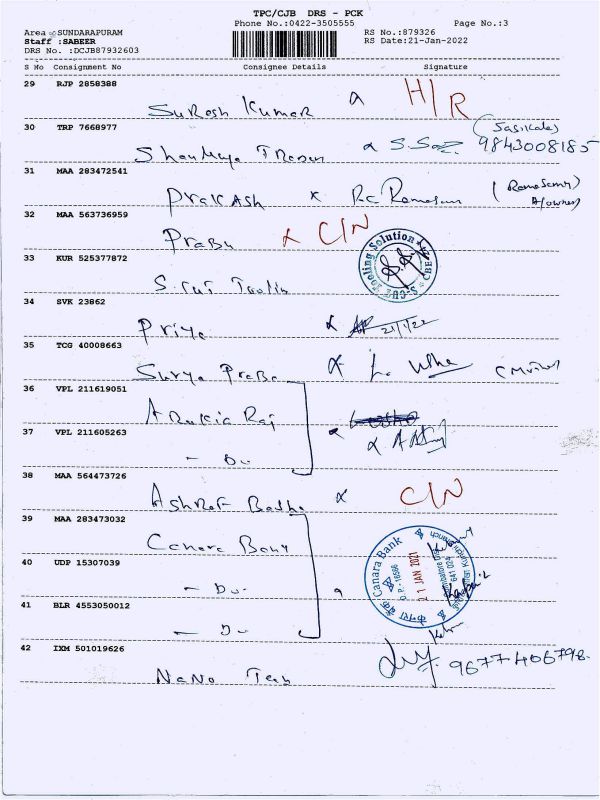 TPC/CJB DRS - PCK
Phone No.:0422-3505555 Page No.:3
Area : SUNDARAPURAM RS No.:879326
Staff :SABEER RS Date:21-Jan-2022
DRS No. :DCJB87932603
S No Consignment No Consignee Details Signature
29 RJP 2858388
Suresh Kumar H/R
30 TRP 7668977
(Sasikala)
9843008185
31 MAA 283472541
Prakash
32 MAA 563736959
Prabu C/N
33 KUR 525377872
Cooling Solution
CBE
34 SVK 23862
Priya 21/1/22
35 TCG 40008663
Surya Praba Usha
36 VPL 211619051
Raj
37 VPL 211605263
- Do -
38 MAA 564473726
Ashraf C/N
39 MAA 283473032
Canara Bank
Canara Bank
D.P. 16566
21 JAN 2021
641 024
40 UDP 15307039
- Do -
41 BLR 4553050012
- Do -
42 IXM 501019626
Nano Tech 9677406798